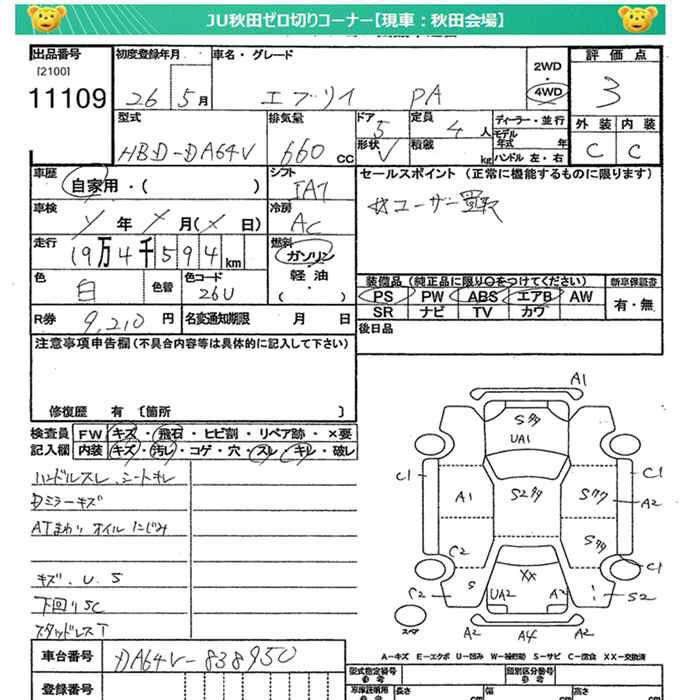 JU秋田ゼロ切りコーナー【現車：秋田会場】
出品番号
[2100]
11109
初度登録年月
26 5月
車名・グレード
エブリイ PA
2WD
4WD
評価点
3
型式
HBD-DA64V
排気量
660 cc
ドア
5
定員
4人
ディーラー・並行
モデル
年式 年
ハンドル 左・右
形状
V
積載
kg
外装 内装
C C
車歴
自家用・( )
シフト
IA7
セールスポイント (正常に機能するものに限ります)
車検
年 月( 日)
冷房
AC
走行
19万4千594km
燃料
ガソリン
軽・油
( )
色
白
色替
色コード
26U
装備品 (純正品に限り○をつけてください)
新車保証書
PS PW ABS エアB AW
有・無
SR ナビ TV カワ
R券 9,210 円
名変通知期限 月 日
後日品
注意事項申告欄 (不具合内容等は具体的に記入して下さい)
修復歴 有 〔箇所 〕
検査員 FW キズ・飛石・ヒビ割・リペア跡・×要
記入欄 内装 キズ・汚レ・コゲ・穴・スレ・キレ・破レ
ハンドルスレ、シートキレ
Dミラーキズ
ATまわり オイルにじみ
キズ、U、S
下回りSC
スタッドレスT
A1
UA1
C1
A1
C1
A2
C2
C1
C2
S
XX
UA2
A2
S2
スペア
A2
A4
A2
A-キズ E-エクボ U-凹み W-補修跡 S-サビ C-腐食 XX-交換済
車台番号 DA64V-838950
登録番号
型式指定番号
参考
類別区分番号
参考
長さ
cm
幅
cm
高さ
cm